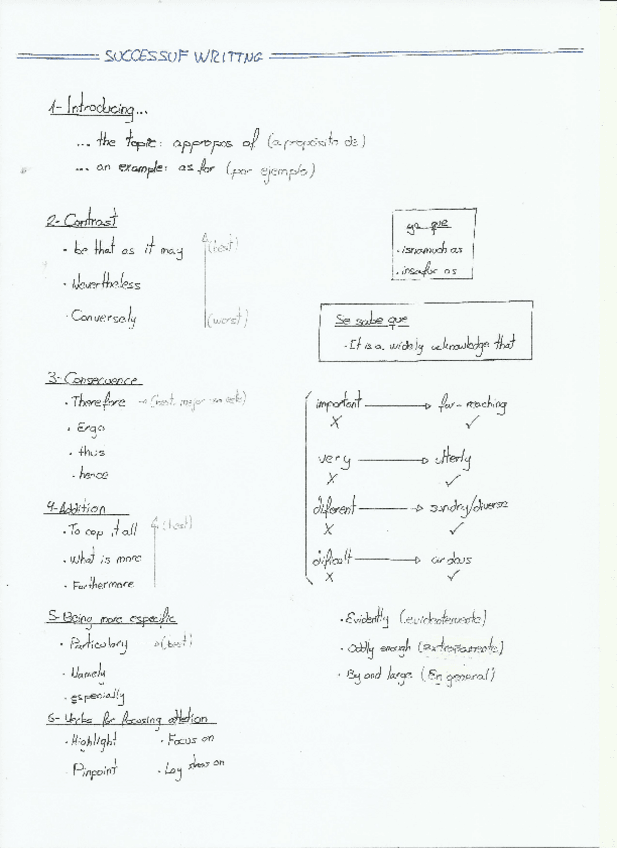 SUCCESSUF WRITTNG
1- Introducing...
... the topic: appropos of (a proposito de)
... an example: as for (por ejemplo)
2- Contrast
· be that as it may (best)
· Nevertheless
· Conversely (worst)
ya que
· isnamuch as
· insofar as
Se sabe que
· It is a widely acknowledge that
3- Consecuence
· Therefore (best, mejor
· Ergo
· thus
· hence
important → far-reaching
X ✓
very → utterly
X ✓
diferent → sundry/diverse
X ✓
dificult → ardous
X ✓
4- Addition
· To cap it all (best)
· What is more
· Farthermore
5- Being more especific
· Particulary (best)
· Namely
· especially
· Evidently (evidentemente)
· Oddly enough
· By and large (En general)
6- Verbs for focusing attetion
· Highlight · Focus on
· Pinpoint · Lay stress on